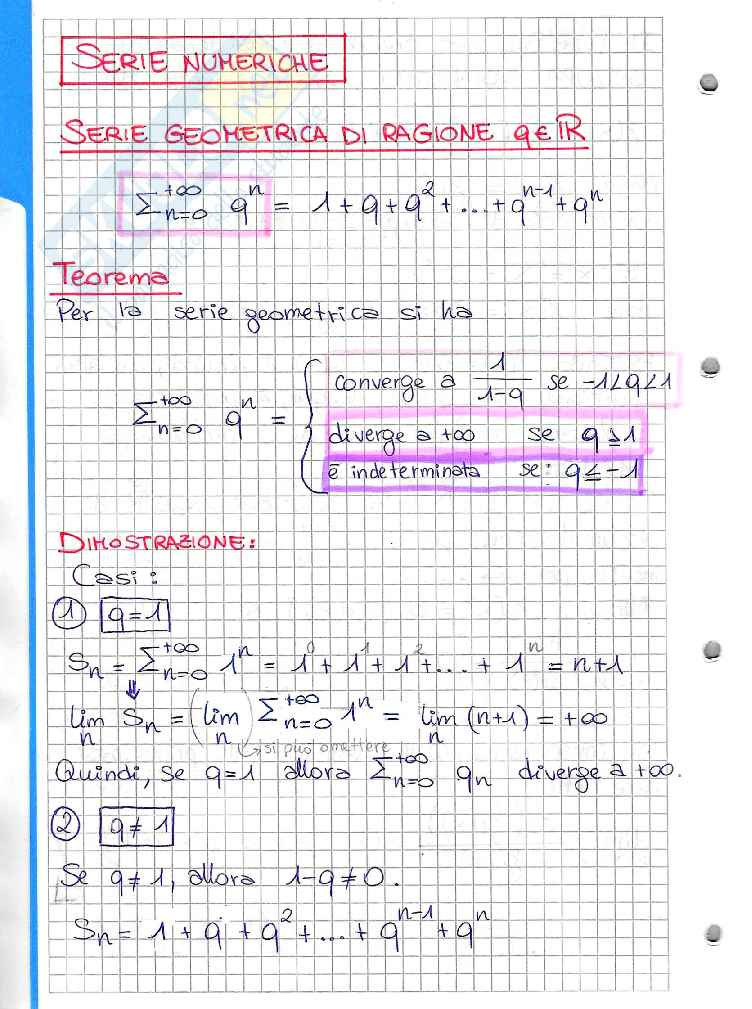 SERIE NUMERICHE
SERIE GEOMETRICA DI RAGIONE q∈ℝ
Σ_{n=0}^{+∞} q^n = 1+q+q^2+...+q^{n-1}+q^n
Teorema
Per la serie geometrica si ha
Σ_{n=0}^{+∞} q^n = {
converge a 1/(1-q) se -1<q<1
diverge a +∞ se q≥1
è indeterminata se: q≤-1
DIMOSTRAZIONE:
Casi:
① q=1
S_n = Σ_{n=0}^{+∞} 1^n = 1^0+1^1+1^2+...+1^n = n+1
⇓
lim_n S_n = (lim_n) Σ_{n=0}^{+∞} 1^n = lim_n (n+1) = +∞
↳ si può omettere
Quindi, se q=1 allora Σ_{n=0}^{+∞} q_n diverge a +∞.
② q≠1
Se q≠1, allora 1-q≠0.
S_n = 1+q+q^2+...+q^{n-1}+q^n